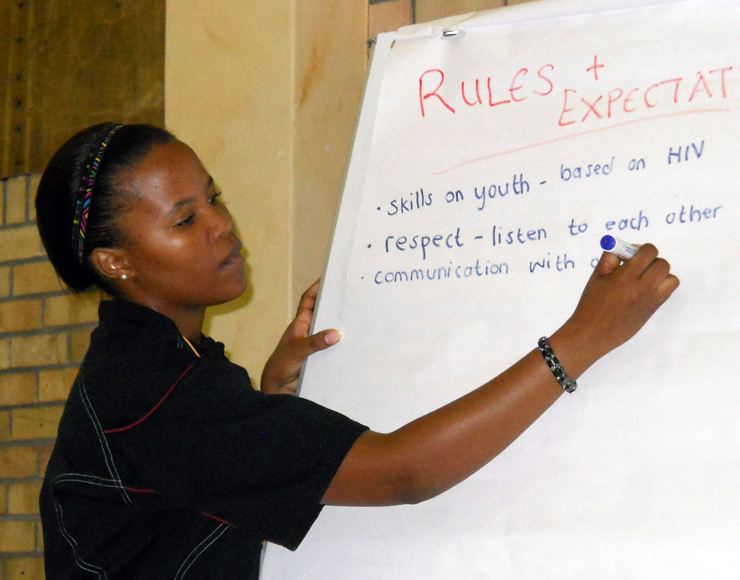 RULES +
EXPECTAT
· skills on youth - based on HIV
· respect - listen to each other
· communication with